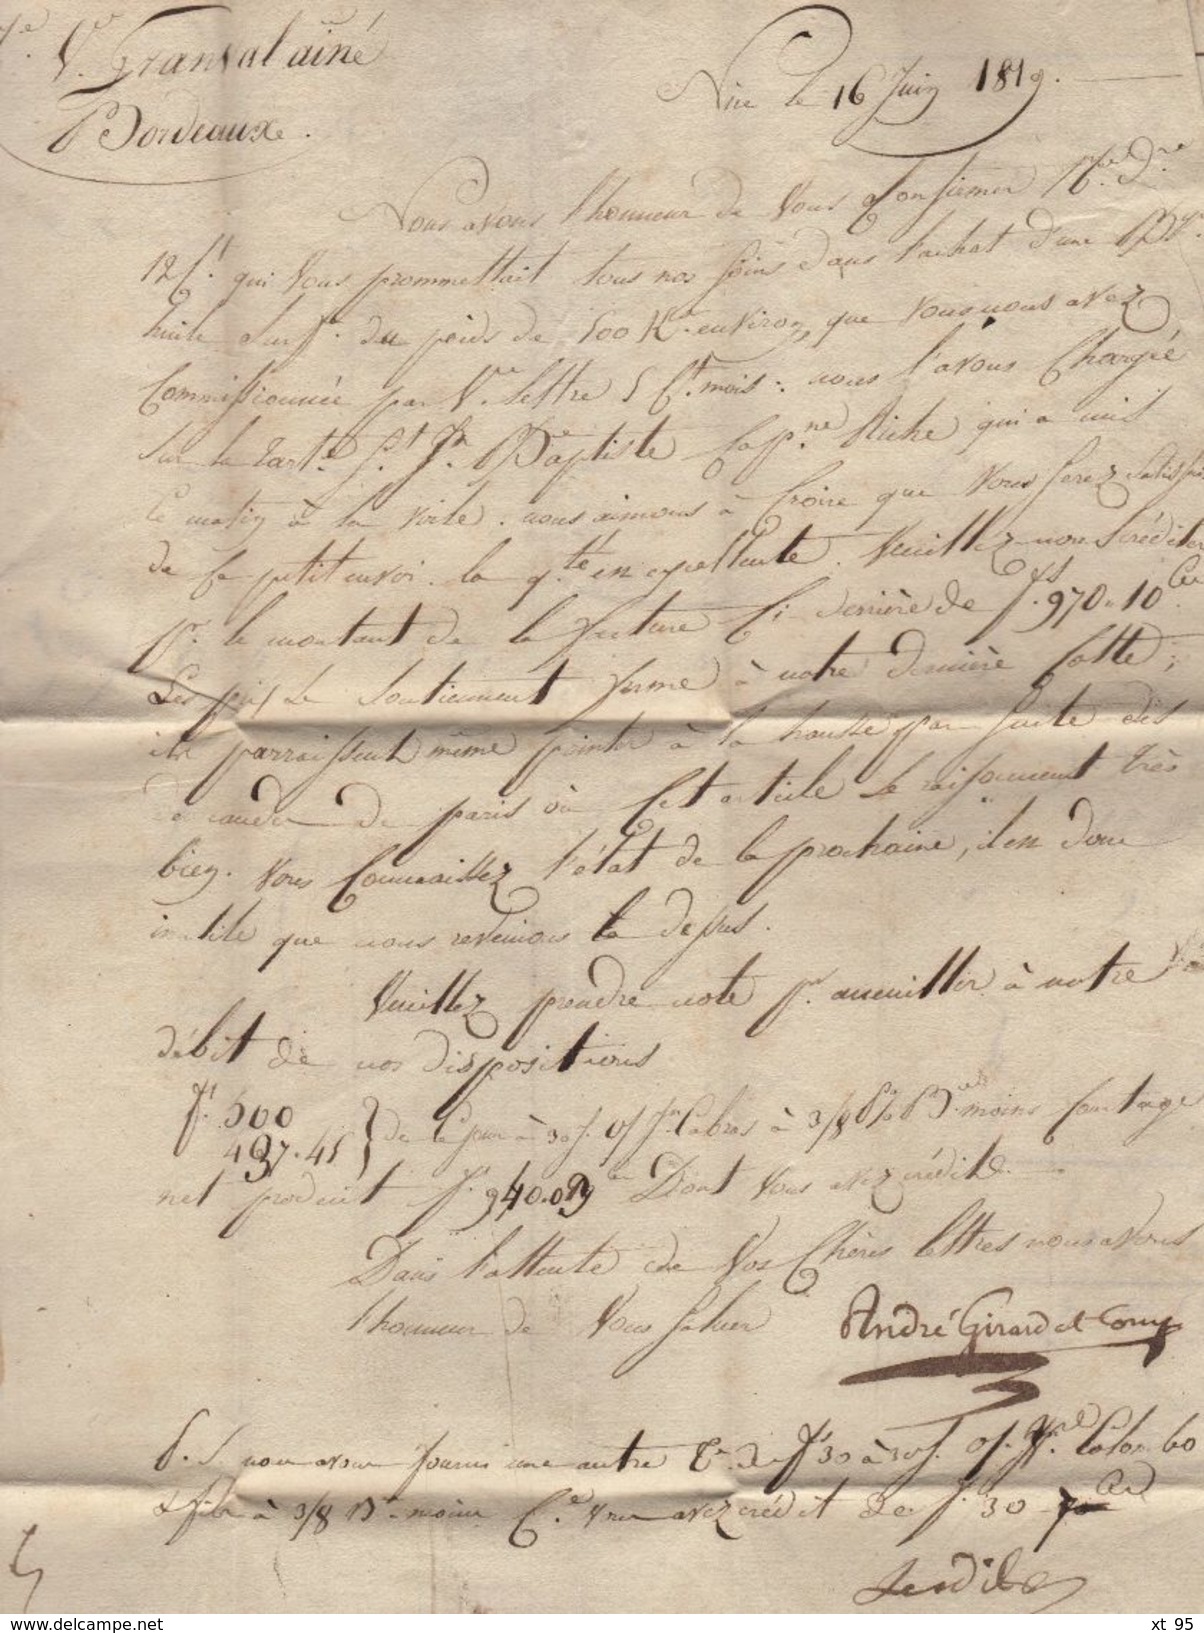 Vve Fransal ainé
Bordeaux.
Nice le 16 Juin 1819.
Nous avons l'honneur de Vous Confirmer
12 Ct. qui Vous promettait tous nos soins dans l'achat d'une
huile surf. du poids de 500 K. environ, que vous nous avez
Commissionnée par Ve. lettre 5 Ct. mois: nous l'avons Chargée
sur la Tarte. St. Jn. Baptiste Capne. Riche qui a mis
ce matin à la voile. nous aimons à Croire que Vous serez satisfait
de ce petit envoi. la qté. en excellente. Veuillez nous Créditer
pr. le montant de la facture Ci derrière de fs. 970.10 Ces.
Les prix se soutiennent ferme à notre dernière Cotte;
ils parraissent même pointer à la hausse par suite des
demandes de paris où Cet article se raisonnent très
bien. Vous Connaissez l'état de la prochaine, il en donc
inutile que nous revenions là dessus.
Veuillez prendre note pr. à notre
débit de nos dispositions
fs. 500
437.45 de à 30 j. o/ Jn. Cabras à 3/8 % moins Courtage
net produit fs. 940.09 Dont Vous avez crédité.
Dans l'attente de Vos Chères lettres nous avons
l'honneur de Vous Saluer
André Girard et Comp
P.S. nous avons fourni une autre Te. de fs 30 à 30 j. o/. Colombo
& fils à 3/8 Be. moins Ce. Vous avez crédit de f. 30